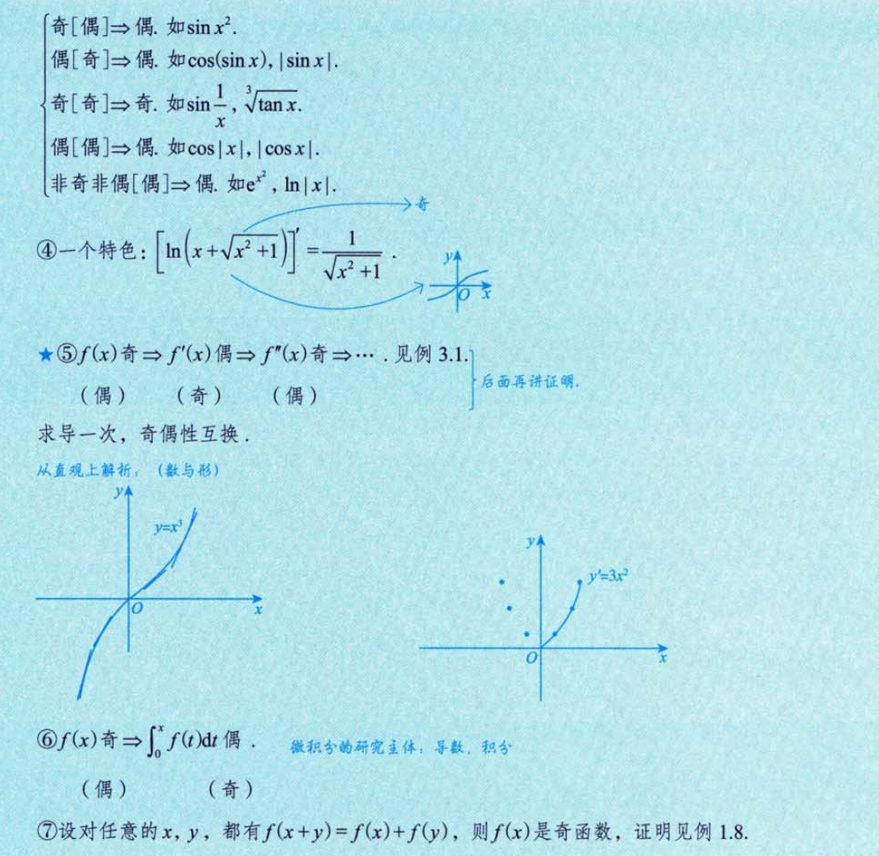 奇[偶]⇒偶. 如sin x².
偶[奇]⇒偶. 如cos(sin x), |sin x|.
奇[奇]⇒奇. 如sin 1/x, ∛(tan x).
偶[偶]⇒偶. 如cos|x|, |cos x|.
非奇非偶[偶]⇒偶. 如e^{x²}, ln|x|.
奇
④一个特色: [ln(x+√(x²+1))]′ = 1/√(x²+1) .
y
O x
★⑤f(x)奇⇒f′(x)偶⇒f″(x)奇⇒⋯ . 见例 3.1.
(偶) (奇) (偶)
后面再讲证明.
求导一次, 奇偶性互换.
从直观上解析: (数与形)
y
y=x³
O x
y
y′=3x²
O x
⑥f(x)奇⇒∫₀ˣ f(t)dt 偶 . 微积分的研究主体: 导数, 积分
(偶) (奇)
⑦设对任意的x, y, 都有f(x+y)=f(x)+f(y), 则f(x)是奇函数, 证明见例 1.8.